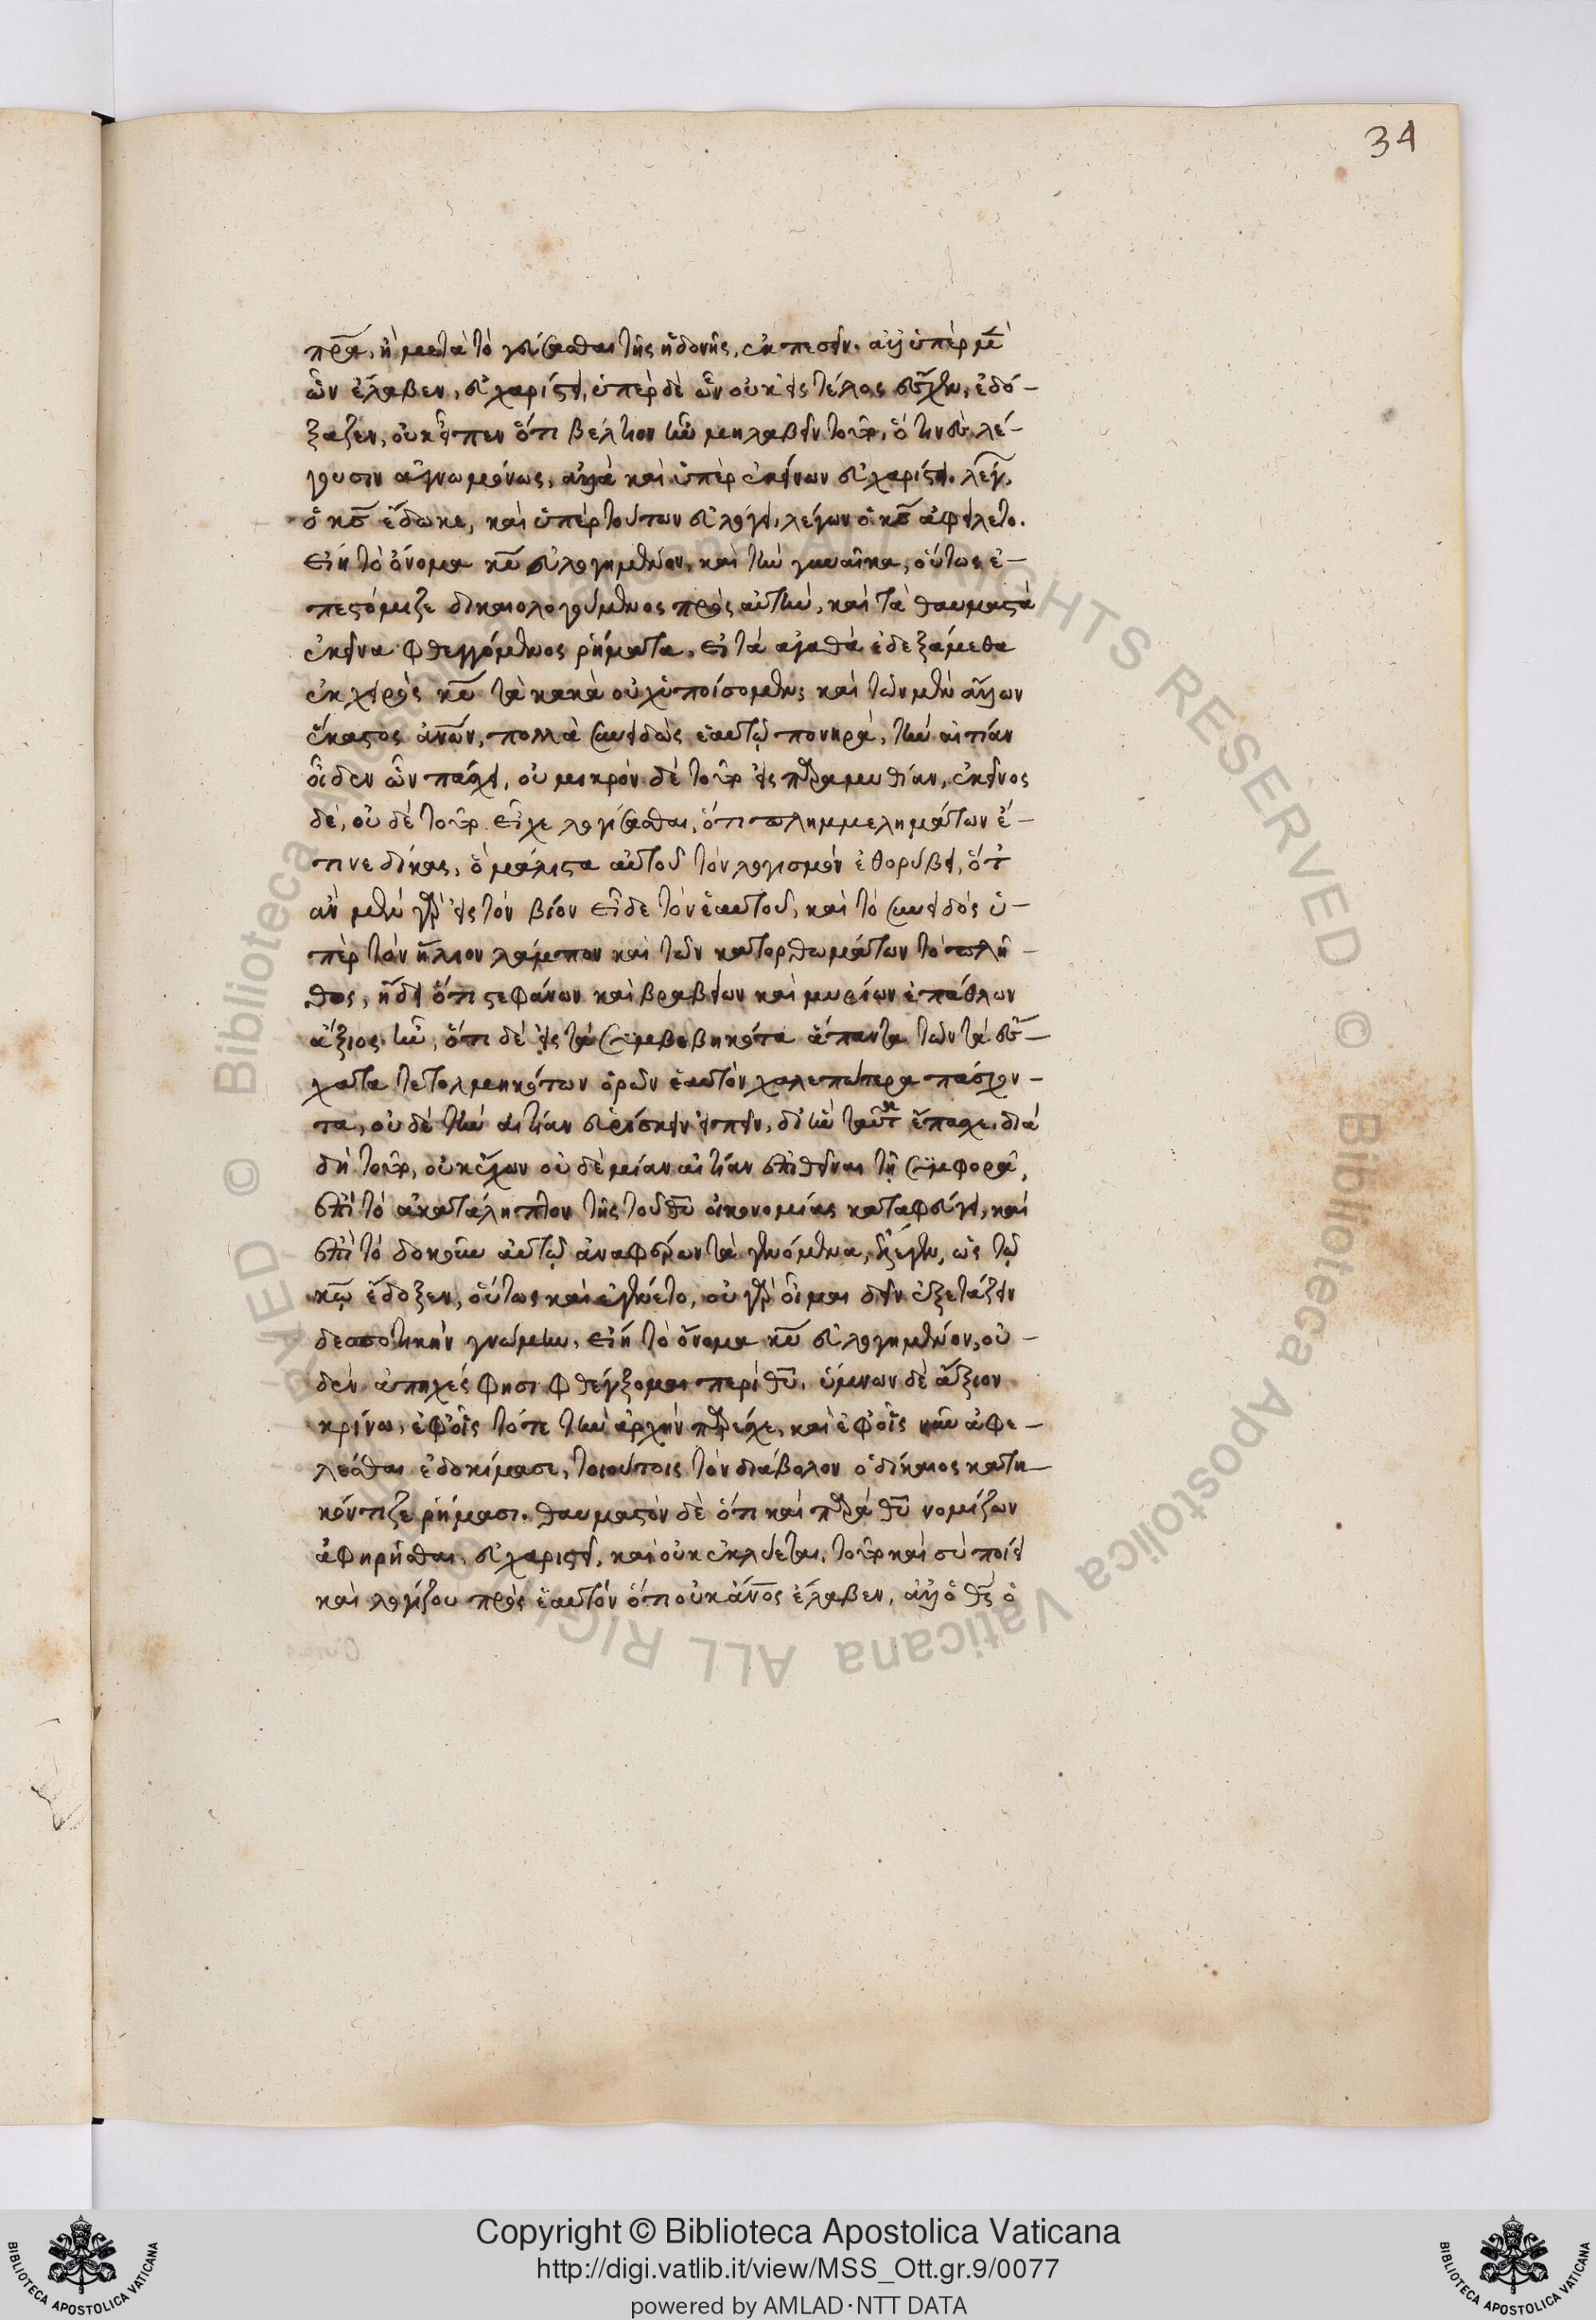 34
πρᾶ, ἢ μετὰ τὸ γεύσασθαι τῆς ἡδονῆς, ἐκπεσεῖν. ἀλλ' ὑπὲρ μὲν
ὧν ἔλαβεν, εὐχαριστεῖ, ὑπὲρ δὲ ὧν οὐκ εἰς τέλος ἔσχεν, ἐδό-
ξαζεν, οὐκ εἶπεν ὅτι βέλτιον ἦν μὴ λαβεῖν τοῦτο, ὅ τινες λέ-
γουσιν ἀγνωμόνως, ἀλλὰ καὶ ὑπὲρ ἐκείνων εὐχαριστεῖ. λέγει,
ὁ κς ἔδωκε, καὶ ὑπὲρ τούτων εὐλογεῖ, λέγων ὁ κς ἀφείλετο.
εἴη τὸ ὄνομα κυ εὐλογημένον, καὶ τὴν γυναῖκα, οὕτως ἐ-
πεστόμιζε δικαιολογούμενος πρὸς αὐτὴν, καὶ τὰ θαυμαστὰ
ἐκεῖνα φθεγγόμενος ῥήματα, εἰ τὰ ἀγαθὰ ἐδεξάμεθα
ἐκ χειρὸς κυ τὰ κακὰ οὐχ ὑποίσομεν; καὶ τῶν μὲν ἄλλων
ἕκαστος ἀνων, πολλὰ συνειδὼς ἑαυτῷ πονηρὰ, τὴν αἰτίαν
οἶδεν ὧν πάσχει, οὐ μικρὸν δὲ τοῦτο εἰς παραμυθίαν, ἐκεῖνος
δὲ, οὐδὲ τοῦτο εἶχε λογίσασθαι, ὅτι πλημμελημάτων ἔ-
τινε δίκας, ὃ μάλιστα αὐτοῦ τὸν λογισμὸν ἐθορύβει, ὅτ'
ἂν μὲν γὰρ εἰς τὸν βίον εἶδε τὸν ἑαυτοῦ, καὶ τὸ συνειδὸς ὑ-
πὲρ τὸν ἥλιον λάμπον καὶ τῶν κατορθωμάτων τὸ πλῆ-
θος, ᾔδει ὅτι στεφάνων καὶ βραβείων καὶ μυρίων ἐπάθλων
ἄξιος ἦν, ὅτι δὲ εἰς τὰ συμβεβηκότα ἅπαντα τῶν τὰ ἔσ-
χατα τετολμηκότων ὁρῶν ἑαυτὸν χαλεπώτερα πάσχον-
τα, οὐδὲ τὴν αἰτίαν εὑρίσκειν εἰπεῖν, δι' ἣν ταῦτα ἔπασχε. διὰ
δὴ τοῦτο, οὐκ ἔχων οὐδὲ μίαν αἰτίαν ἐπιθεῖναι τῇ συμφορᾷ,
ἐπὶ τὸ ἀκατάληπτον τῆς τοῦ θυ οἰκονομίας καταφεύγει, καὶ
ἐπὶ τὸ δοκοῦν αὐτῷ ἀναφέρων τὰ γενόμενα, ἔλεγεν, ὡς τῷ
κω ἔδοξεν, οὕτως καὶ ἐγένετο, οὐ γὰρ οἶμαι δεῖν ἐξετάζειν
δεσποτικὴν γνώμην. εἴη τὸ ὄνομα κυ εὐλογημένον, οὐ-
δὲν ἀπηχές φησι φθέγξομαι περὶ θυ, ὕμνων δὲ ἄξιον
κρίνω, ἐφ' οἷς τότε τὴν ἀρχὴν παρέσχε, καὶ ἐφ' οἷς νῦν ἀφε-
λέσθαι ἐδοκίμασε, τοιούτοις τὸν διάβολον ὁ δίκαιος κατη-
κόντιζε ῥήμασι. θαυμαστὸν δὲ ὅτι καὶ παρὰ θυ νομίζων
ἀφῃρῆσθαι, εὐχαριστεῖ, καὶ οὐκ ἐκλύεται, τοῦτο καὶ σὺ ποίει
καὶ λογίζου πρὸς ἑαυτὸν ὅτι οὐκ ἄνος ἔλαβεν, ἀλλ' ὁ θς ὁ
Copyright © Biblioteca Apostolica Vaticana
http://digi.vatlib.it/view/MSS_Ott.gr.9/0077
powered by AMLAD·NTT DATA
BIBLIOTECA APOSTOLICA VATICANA
BIBLIOTECA APOSTOLICA VATICANA
© Biblioteca Apostolica Vaticana ALL RIGHTS RESERVED
© Biblioteca Apostolica Vaticana ALL RIGHTS RESERVED